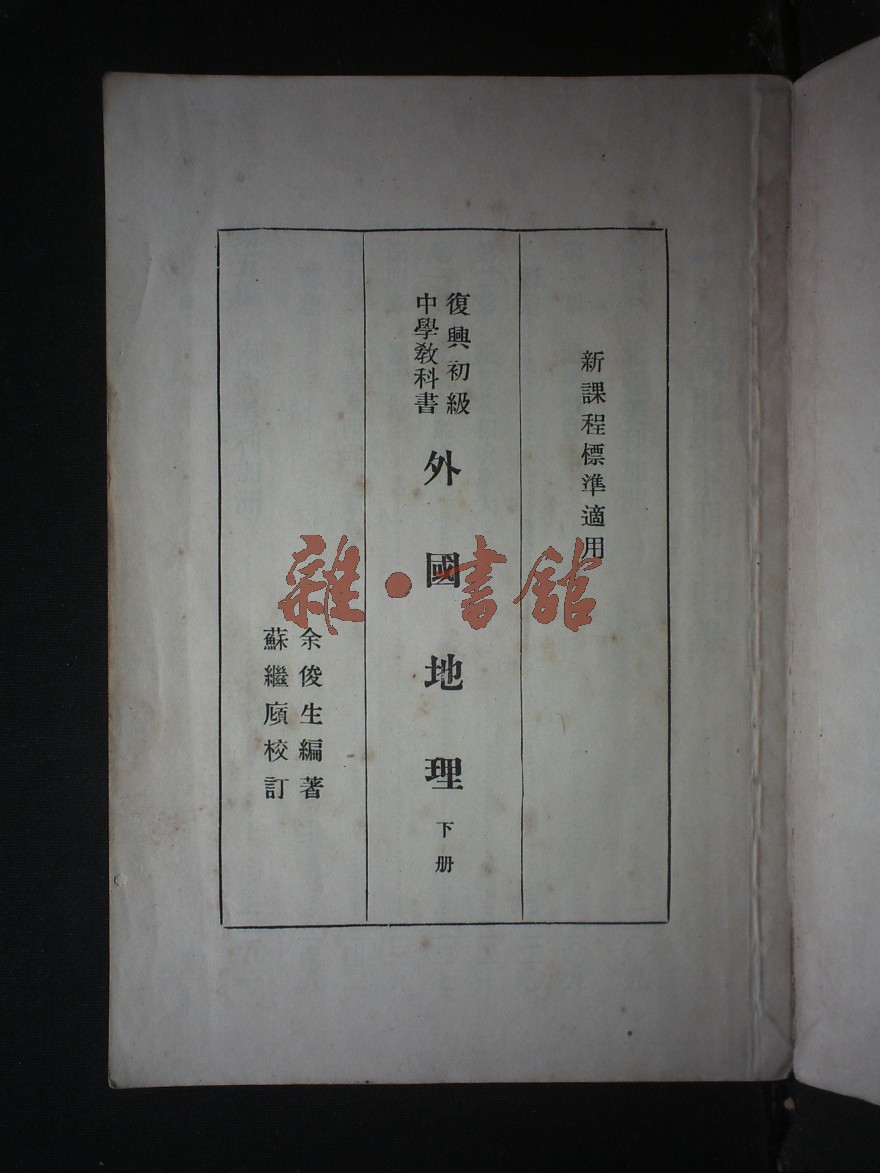 新課程標準適用
復興初級
中學教科書
外國地理 下册
余俊生編著
蘇繼廎校訂
雜·書館